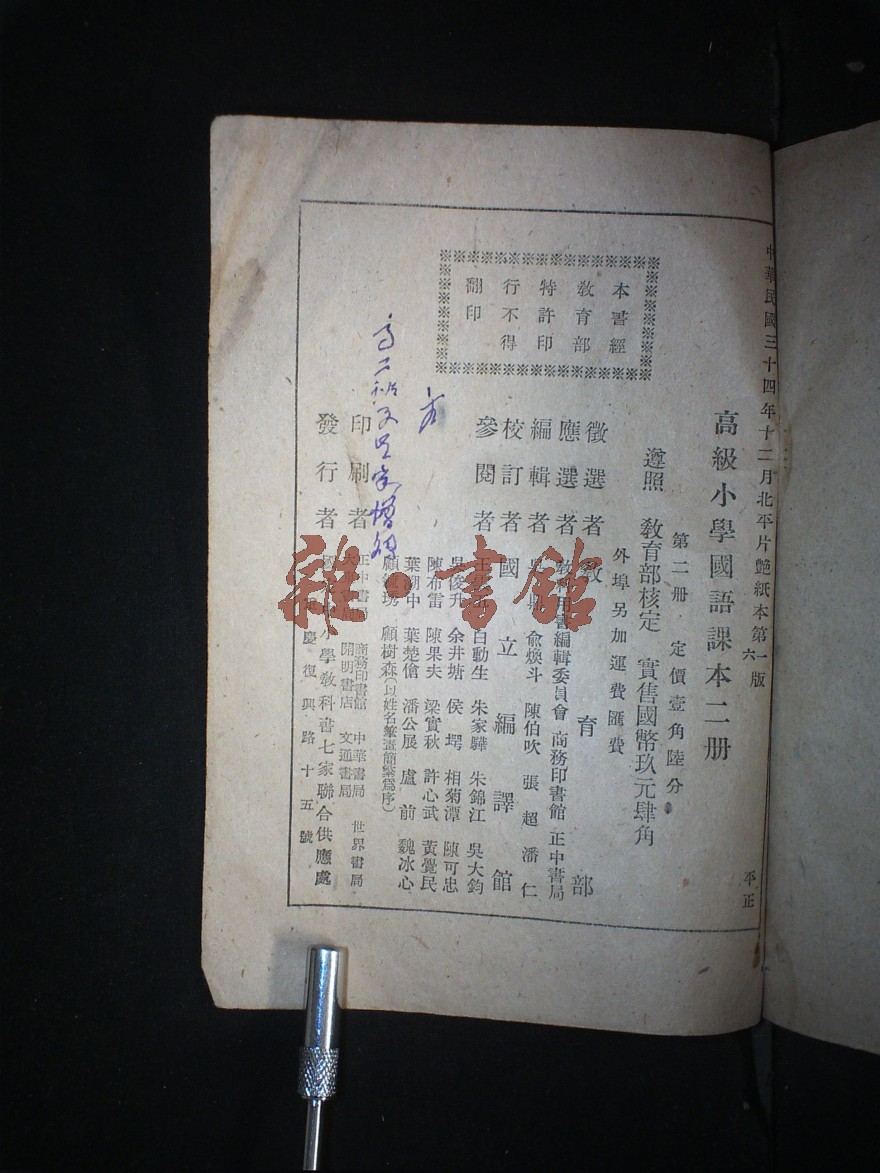 中華民國三十四年十二月北平片艶紙本第一版
六
平正
高級小學國語課本二册
第二册 定價壹角陸分
遵照 敎育部核定 實售國幣玖元肆角
外埠另加運費匯費
徵選者 敎育部
應選者 敎科用書編輯委員會 商務印書館 正中書局
編輯者 俞煥斗 陳伯吹 張超 潘仁
校訂者 國立編譯館
參閱者 白動生 朱家驊 朱錦江 吳大鈞
吳俊升 余井塘 侯堮 相菊潭 陳可忠
陳布雷 陳果夫 梁實秋 許心武 黃覺民
葉溯中 葉楚傖 潘公展 盧前 魏冰心
顧樹森(以姓名筆畫簡繁爲序)
印刷者 正中書局 商務印書館 中華書局 世界書局
開明書店 文通書局
發行者 國 小學敎科書七家聯合供應處
慶復興路十五號
本書經
敎育部
特許印
行不得
翻印
雜·書館